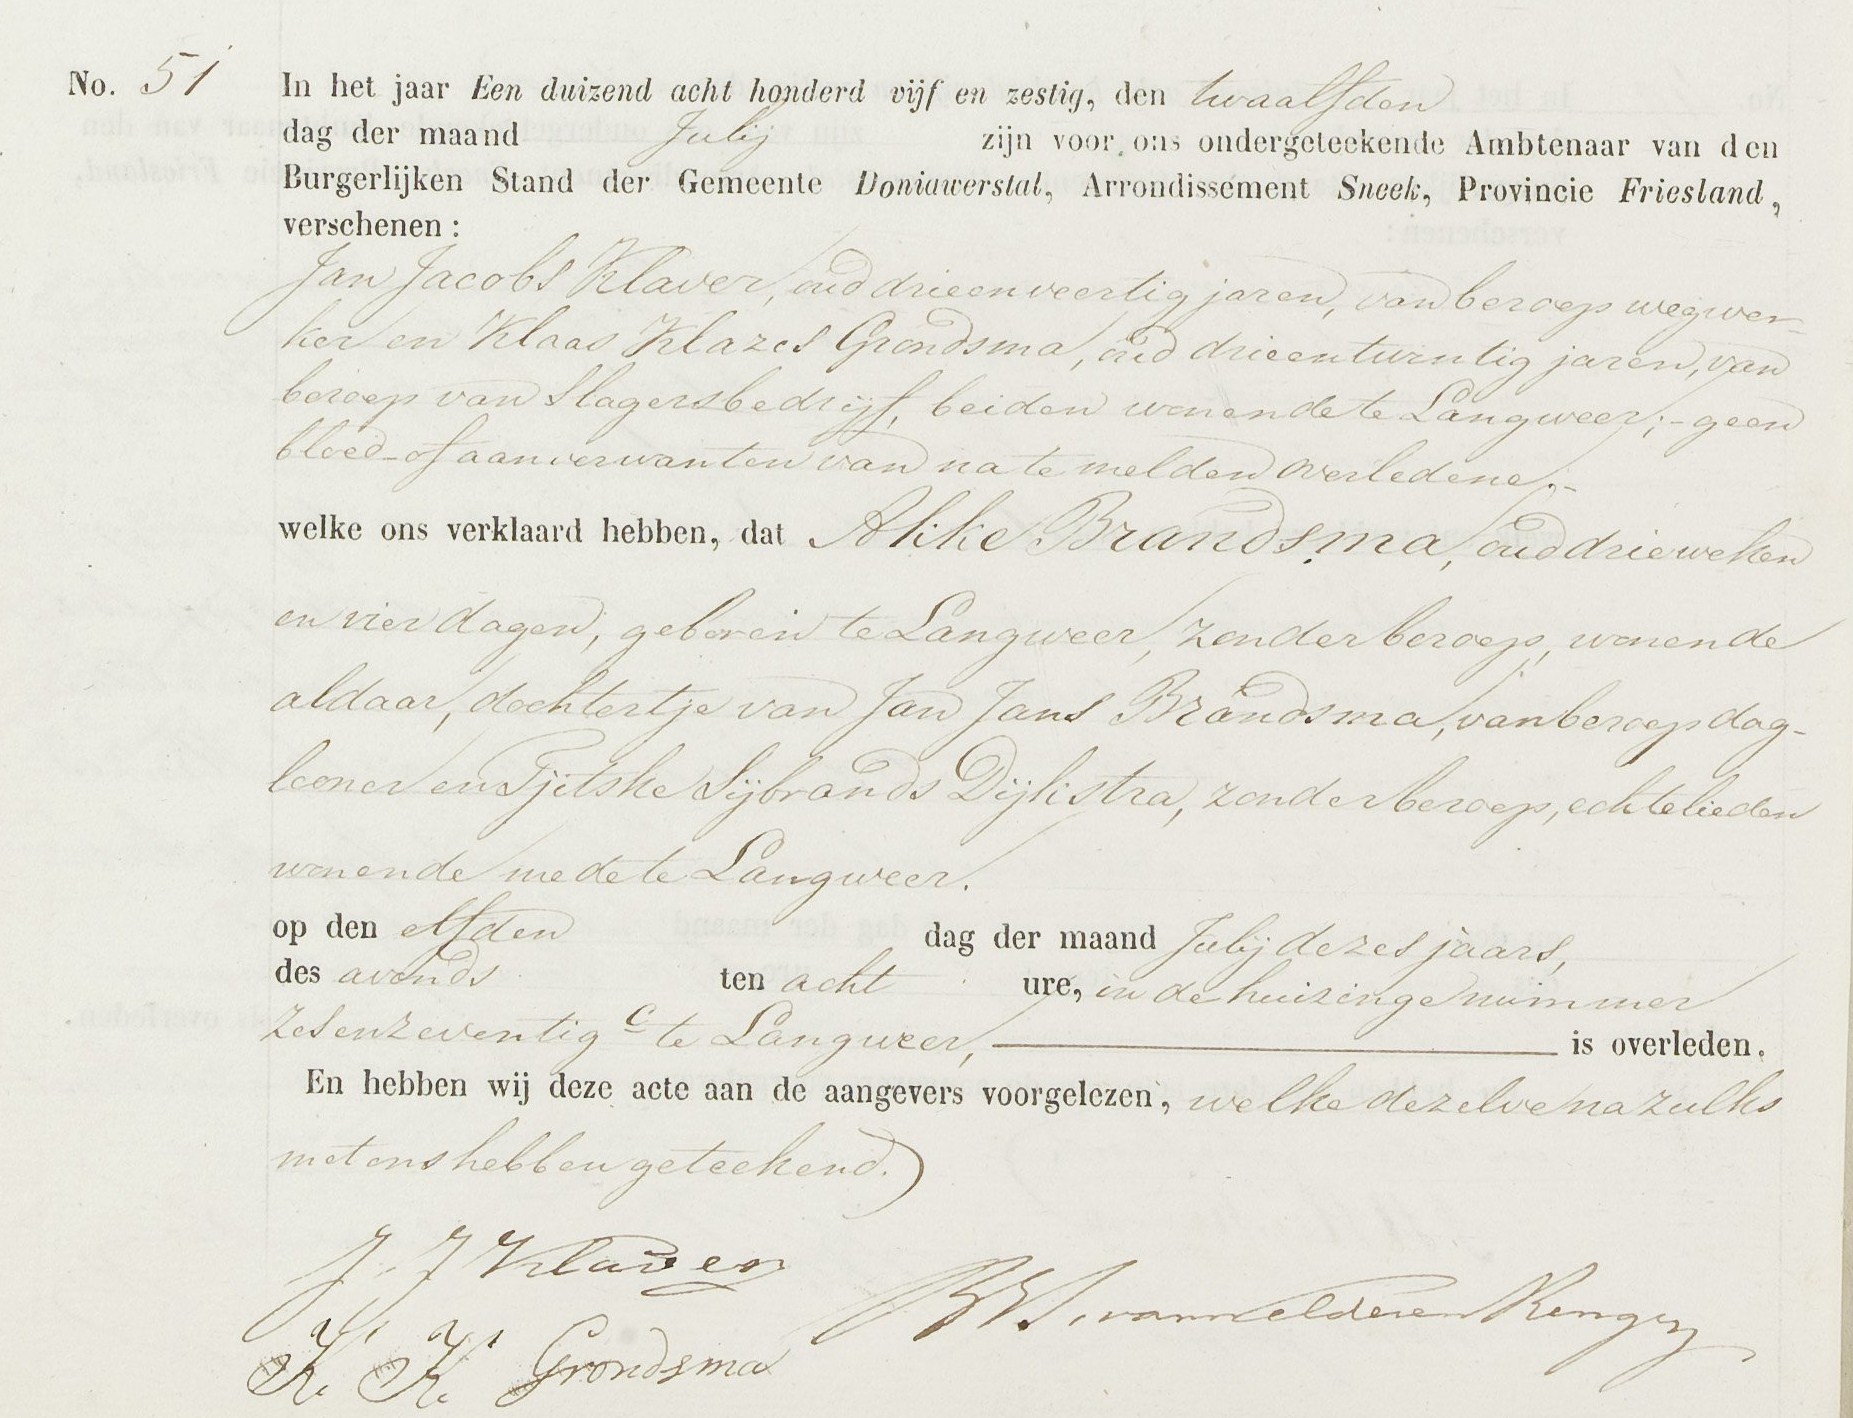 No. 51 In het jaar Een duizend acht honderd vijf en zestig, den twaalfden
dag der maand Julij zijn voor ons ondergeteekende Ambtenaar van den
Burgerlijken Stand der Gemeente Doniawerstal, Arrondissement Sneek, Provincie Friesland,
verschenen:
Jan Jacobs Klaver, oud drieenveertig jaren, van beroep wegwer-
ker en Klaas Klazes Grondsma, oud drieentwintig jaren, van
beroep van Slagersbedrijf, beiden wonende te Langweer; - geen
bloed- of aanverwanten van na te melden overledene; -
welke ons verklaard hebben, dat Akke Brandsma, oud drie weken
en vier dagen, geboren te Langweer, zonder beroep, wonende
aldaar, dochtertje van Jan Jans Brandsma, van beroep dag-
looner en Tjitske Sijbrands Dijkstra, zonder beroep, echtelieden
wonende mede te Langweer.
op den elfden dag der maand Julij dezes jaars,
des avonds ten acht ure, in de huizinge nummer
zesenzeventig c te Langweer, is overleden.
En hebben wij deze acte aan de aangevers voorgelezen, welke dezelve na zulks
met ons hebben geteekend.)
J. J Klaver
van Welderen Rengers
K. K. Grondsma